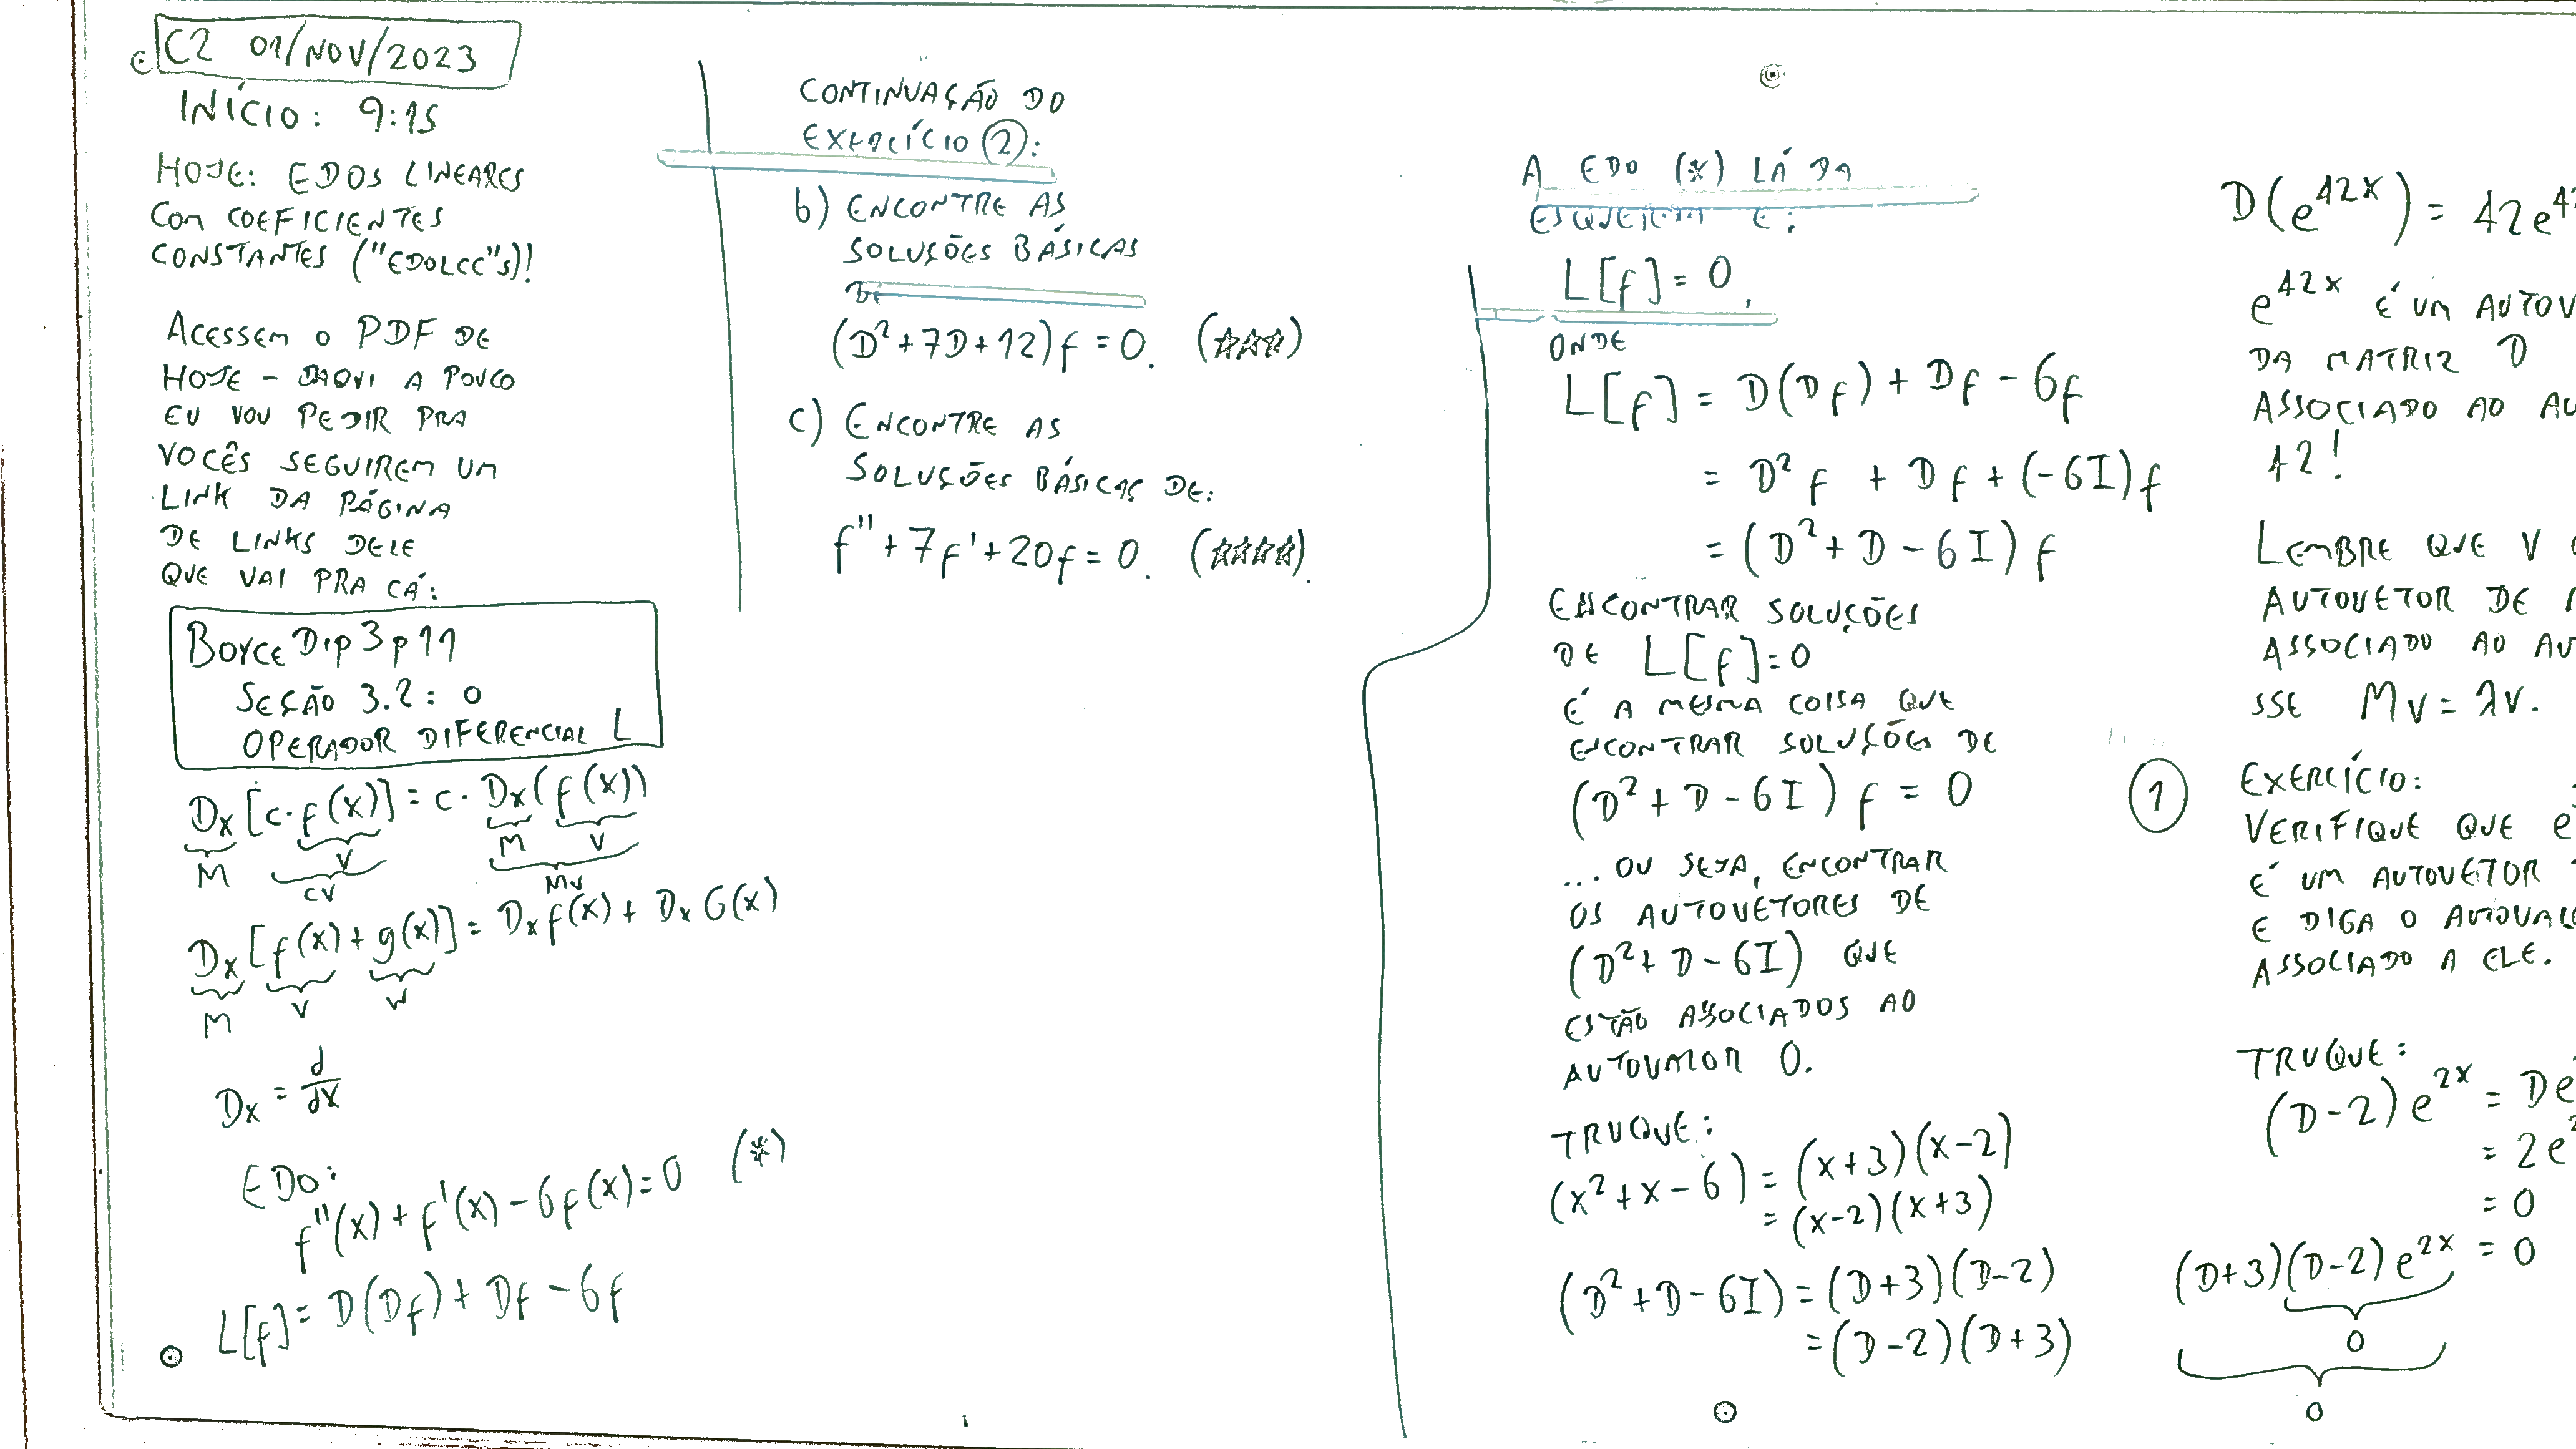 C2 01/NOV/2023
INÍCIO: 9:15
HOJE: EDOS LINEARES
COM COEFICIENTES
CONSTANTES ("EDOLCC"s)!
ACESSEM O PDF DE
HOJE – DAQUI A POUCO
EU VOU PEDIR PRA
VOCÊS SEGUIREM UM
LINK DA PÁGINA
DE LINKS DELE
QUE VAI PRA CÁ:
BOYCEDIP3P11
SEÇÃO 3.2: O
OPERADOR DIFERENCIAL L
Dx [c·f(x)] = c· Dx (f(x))
M V M V
CV MV
Dx [f(x) + g(x)] = Dx f(x) + Dx G(x)
M V W
Dx = d/dx
EDO:
f''(x) + f'(x) – 6f(x) = 0 (*)
L[f] = D(Df) + Df – 6f
CONTINUAÇÃO DO
EXERCÍCIO 2:
b) ENCONTRE AS
SOLUÇÕES BÁSICAS
DE
(D² + 7D + 12) f = 0. (☆☆☆)
c) ENCONTRE AS
SOLUÇÕES BÁSICAS DE:
f'' + 7f' + 20f = 0. (☆☆☆☆).
A EDO (*) LÁ DA
É:
L[f] = 0,
ONDE
L[f] = D(Df) + Df – 6f
= D² f + Df + (–6I)f
= (D² + D – 6I) f
ENCONTRAR SOLUÇÕES
DE L[f] = 0
É A MESMA COISA QUE
ENCONTRAR SOLUÇÕES DE
(D² + D – 6I) f = 0
... OU SEJA, ENCONTRAR
OS AUTOVETORES DE
(D² + D – 6I) QUE
ESTÃO ASSOCIADOS AO
AUTOVALOR 0.
TRUQUE:
(x² + x – 6) = (x+3)(x–2)
= (x–2)(x+3)
(D² + D – 6I) = (D+3)(D–2)
= (D–2)(D+3)
D(e^42x) = 42e^4
e^42x É UM AUTOV
DA MATRIZ D
ASSOCIADO AO AU
42!
LEMBRE QUE V
AUTOVETOR DE
ASSOCIADO AO AU
SSE Mv = λv.
1 EXERCÍCIO:
VERIFIQUE QUE e
É UM AUTOVETOR
E DIGA O AUTOVAL
ASSOCIADO A ELE.
TRUQUE:
(D–2) e^2x = De
= 2e
= 0
(D+3)(D–2) e^2x = 0
0
0